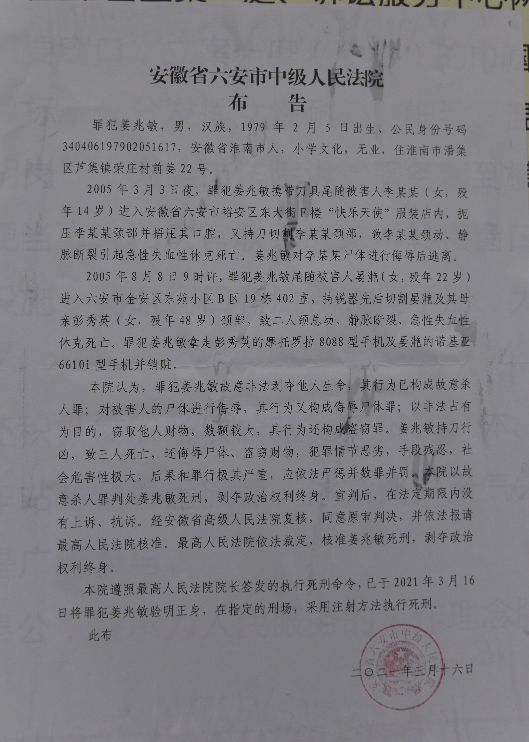 诉讼服务中心网
安徽省六安市中级人民法院
布 告
罪犯姜兆敏，男，汉族，1979 年 2 月 5 日出生，公民身份号码
340406197902051617，安徽省淮南市人，小学文化，无业，住淮南市潘集
区芦集镇荣庄村前姜 22 号。
2005 年 3 月 3 日夜，罪犯姜兆敏携带刀具尾随被害人李某某（女，殁
年 14 岁）进入安徽省六安市裕安区东大街 楼“快乐天使”服装店内，扼
压李某某颈部并捂压其口腔，又持刀切割李某某颈部，致李某某颈动、静
脉断裂引起急性失血性休克死亡。姜兆敏对李某某尸体进行侮辱后逃离。
2005 年 8 月 8 日 9 时许，罪犯姜兆敏尾随被害人晏 （女，殁年 22 岁）
进入六安市金安区东苑小区 B 区 19 栋 402 室，持锐器先后切割晏 及其母
亲彭秀英（女，殁年 48 岁）颈部，致二人颈总动、静脉断裂、急性失血性
休克死亡。罪犯姜兆敏拿走彭秀英的摩托罗拉 8088 型手机及晏 的诺基亚
66101 型手机并销赃。
本院认为，罪犯姜兆敏故意非法剥夺他人生命，其行为已构成故意杀
人罪；对被害人的尸体进行侮辱，其行为又构成侮辱尸体罪；以非法占有
为目的，窃取他人财物，数额较大，其行为还构成盗窃罪。姜兆敏持刀行
凶，致三人死亡，还侮辱尸体、盗窃财物，犯罪情节恶劣，手段残忍，社
会危害性极大，后果和罪行极其严重，应依法严惩并数罪并罚。本院以故
意杀人罪判处姜兆敏死刑，剥夺政治权利终身。宣判后，在法定期限内没
有上诉、抗诉。经安徽省高级人民法院复核，同意原审判决，并依法报请
最高人民法院核准。最高人民法院依法裁定，核准姜兆敏死刑，剥夺政治
权利终身。
本院遵照最高人民法院院长签发的执行死刑命令，已于 2021 年 3 月 16
日将罪犯姜兆敏验明正身，在指定的刑场，采用注射方法执行死刑。
此布
二〇二一年三月十六日
安徽省六安市中级人民法院